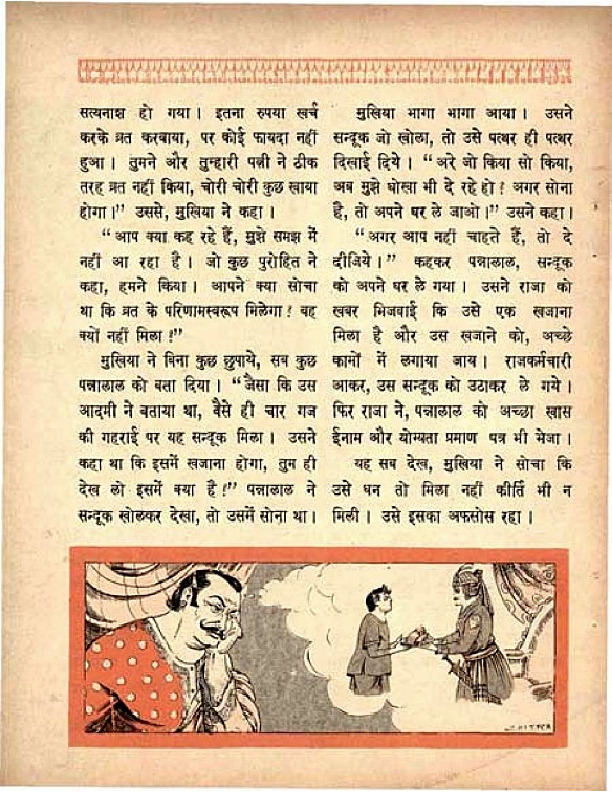 सत्यनाश हो गया। इतना रुपया खर्च
करके व्रत करवाया, पर कोई फायदा नहीं
हुआ। तुमने और तुम्हारी पत्नी ने ठीक
तरह व्रत नहीं किया, चोरी चोरी कुछ खाया
होगा।” उससे, मुखिया ने कहा।
“आप क्या कह रहे हैं, मुझे समझ में
नहीं आ रहा है। जो कुछ पुरोहित ने
कहा, हमने किया। आपने क्या सोचा
था कि व्रत के परिणामस्वरूप मिलेगा? वह
क्यों नहीं मिला?”
मुखिया ने बिना कुछ छुपाये, सब कुछ
पन्नालाल को बता दिया। “जैसा कि उस
आदमी ने बताया था, वैसे ही चार गज
की गहराई पर यह सन्दूक मिला। उसने
कहा था कि इसमें खजाना होगा, तुम ही
देख लो इसमें क्या है?” पन्नालाल ने
सन्दूक खोलकर देखा, तो उसमें सोना था।
मुखिया भागा भागा आया। उसने
सन्दूक जो खोला, तो उसे पत्थर ही पत्थर
दिखाई दिये। “अरे जो किया सो किया,
अब मुझे धोखा भी दे रहे हो? अगर सोना
है, तो अपने घर ले जाओ।” उसने कहा।
“अगर आप नहीं चाहते हैं, तो दे
दीजिये।” कहकर पन्नालाल, सन्दूक
को अपने घर ले गया। उसने राजा को
खबर भिजवाई कि उसे एक खजाना
मिला है और उस खजाने को, अच्छे
कामों में लगाया जाय। राजकर्मचारी
आकर, उस सन्दूक को उठाकर ले गये।
फिर राजा ने, पन्नालाल को अच्छा खास
ईनाम और योग्यता प्रमाण पत्र भी भेजा।
यह सब देख, मुखिया ने सोचा कि
उसे धन तो मिला नहीं कीर्ति भी न
मिली। उसे इसका अफसोस रहा।